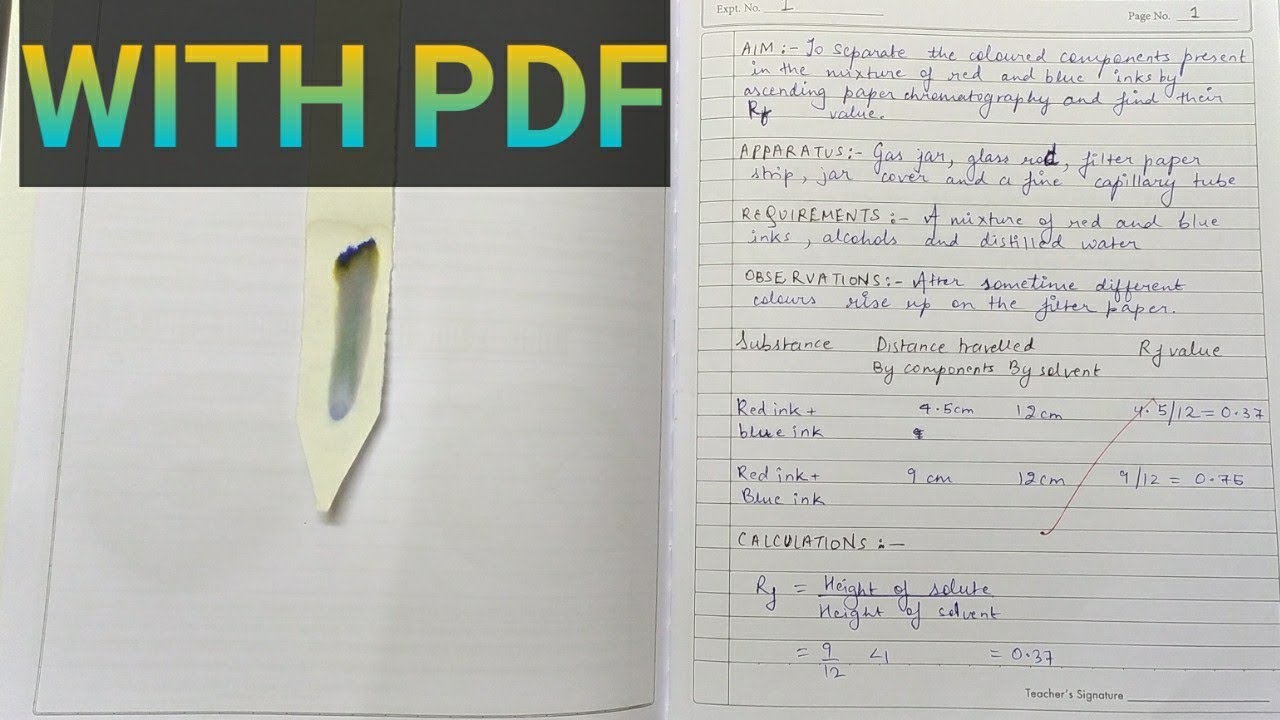 WITH PDF
Expt. No. 1
Page No. 1
AIM :- To separate the coloured components present
in the mixture of red and blue inks by
ascending paper chromatography and find their
Rf value.
APPARATUS:- Gas jar, glass rod, filter paper
strip, jar cover and a fine capillary tube
REQUIREMENTS :- A mixture of red and blue
inks, alcohols and distilled water
OBSERVATIONS:- After sometime different
colours rise up on the filter paper.
Substance Distance travelled Rf value
By components By solvent
Red ink + 4.5cm 12cm 4.5/12 = 0.37
blue ink
Red ink + 9 cm 12cm 9/12 = 0.75
Blue ink
CALCULATIONS :-
Rf = Height of solute
Height of solvent
= 9 <1 = 0.37
12
Teacher's Signature